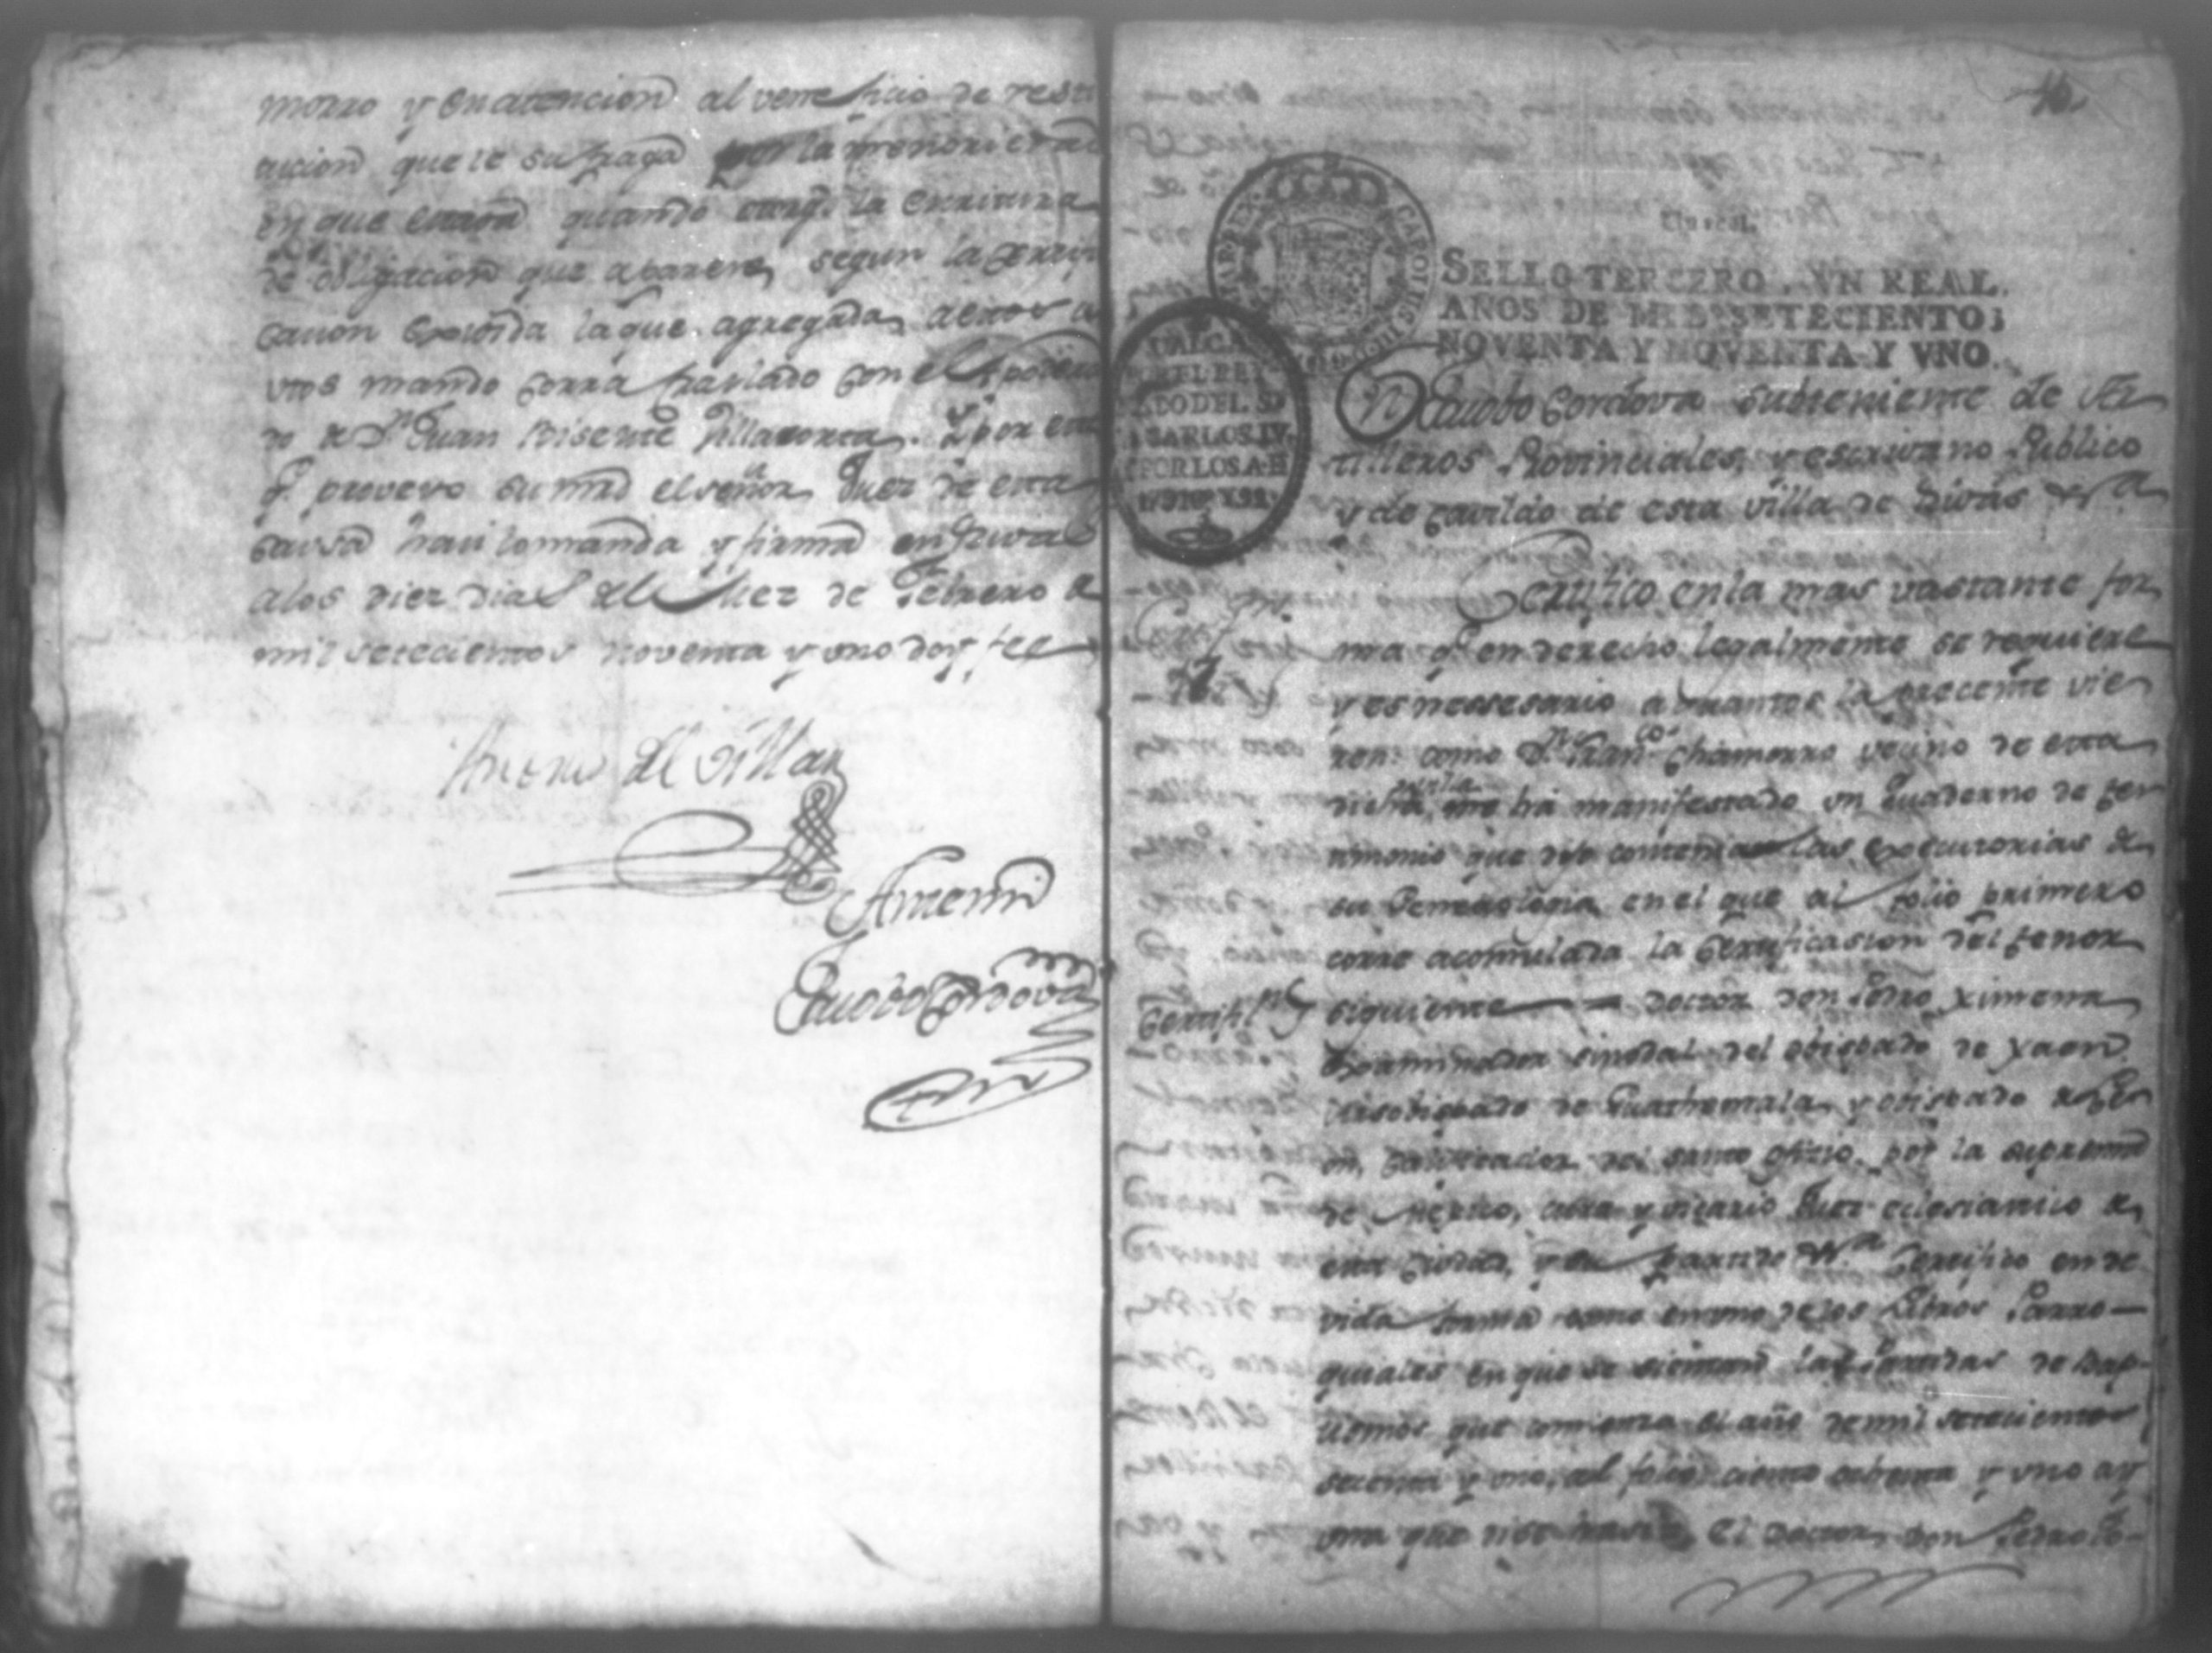 morro y en atencion al venefficio de resti
tucion que le sufraga por la menor edad
en que estava quando otorgó la escritura
de obligacion que aparese, segun la certifi
cacion exsivida la que agregada a estos a
utos mando corra traslado con el Apodera
do de Dn Juan Visente Villavorta. Y por este
qe proveyo su mrd el señor Juez de esta
causa haci lo manda y firma en Rivas
a los diez dias del Mez de Febrero de
mil setecientos noventa y uno doy fee
Antonio del Villar
Antemi
Jacobo Cordova
16
SELLO TERCERO, VN REAL,
AÑOS DE MIL SETECIENTOS
NOVENTA Y NOVENTA Y VNO.
VALGA
EL REY
DO DEL SR
CARLOS IV.
POR LOS A
Dn Jacobo Cordova subteniente de Ar
tilleros Provinciales, y escrivano Publico
y de cavildo de esta villa de Rivas &a
Certifico en la mas vastante for
ma qe en derecho legalmente se requiere
y es nessesario a quantos la precente vie
ren: como Dn Franco Chamorro vecino de esta
dicha villa me ha manifestado un quaderno de tes
timonio que dijo contener las executorias de
su Geneologia en el que al folio primero
corre acomulada la certificasion del tenor
Certific.on
siguiente — Doctor don Pedro Ximena
Examinador sinodal del obispado de Xaen
Arsobispado de Guathemala, y obispado de Le
on, calificador del santo oficio, por la suprema
de Mexico, cura y vicario Juez eclesiastico de
esta ciudad, y su partido &a Certifico en de
vida forma como en uno de los Libros Parro—
quiales en que se sientan las Partidas de Bap
tismos que comienza el año de mil setecientos
setenta y uno, al folio ciento ochenta y uno ay
una que dise haser: El Doctor don Pedro